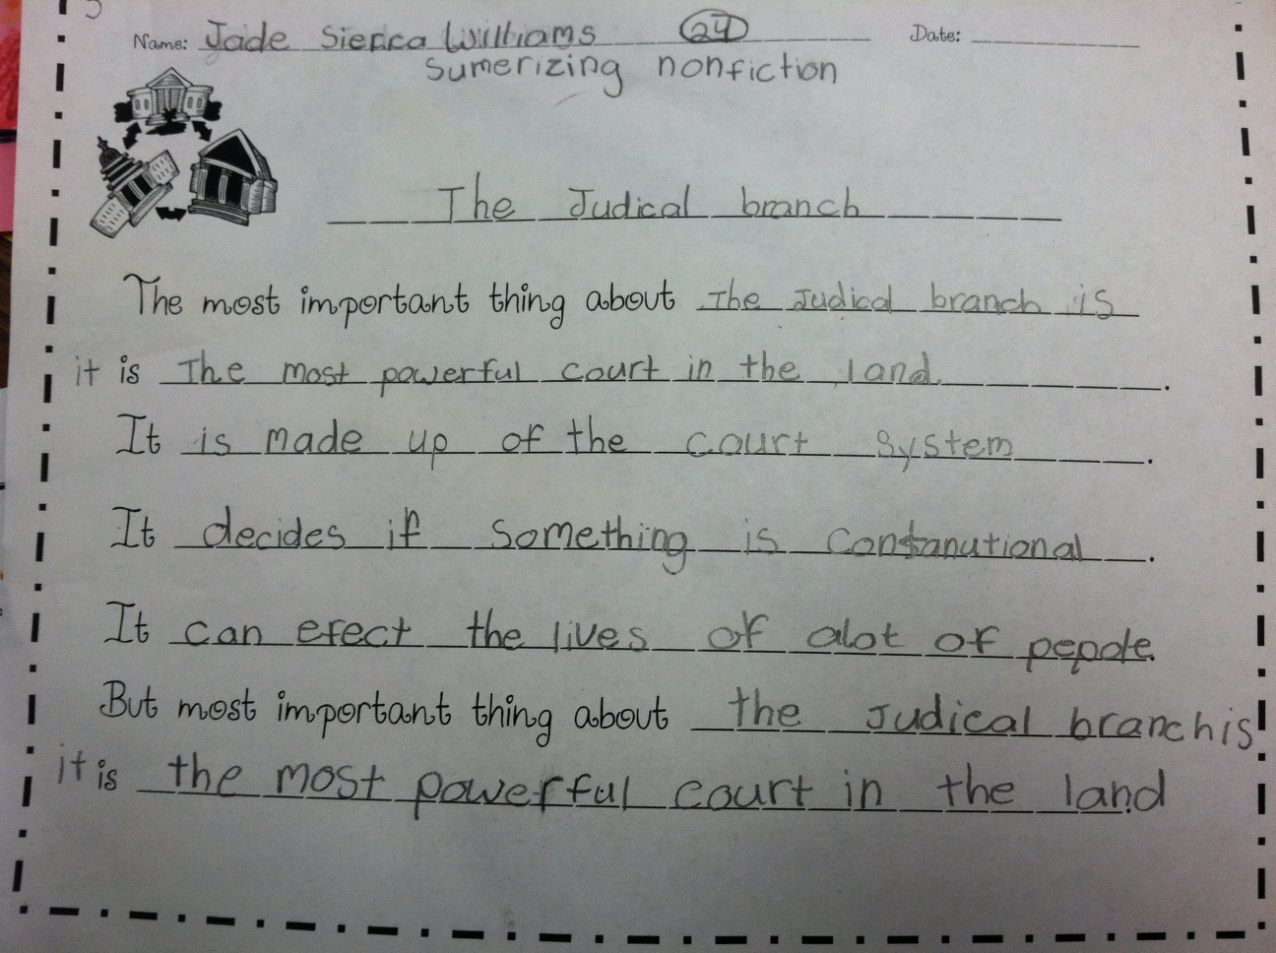 Name: Jade Sierra Williams 24 Date:
Sumerizing nonfiction
The Judical branch
The most important thing about The Judical branch is
it is The most powerful court in the land.
It is made up of the court system.
It decides if something is constanutional.
It can efect the lives of alot of pepole.
But most important thing about the Judical branch is
it is the most powerful court in the land.